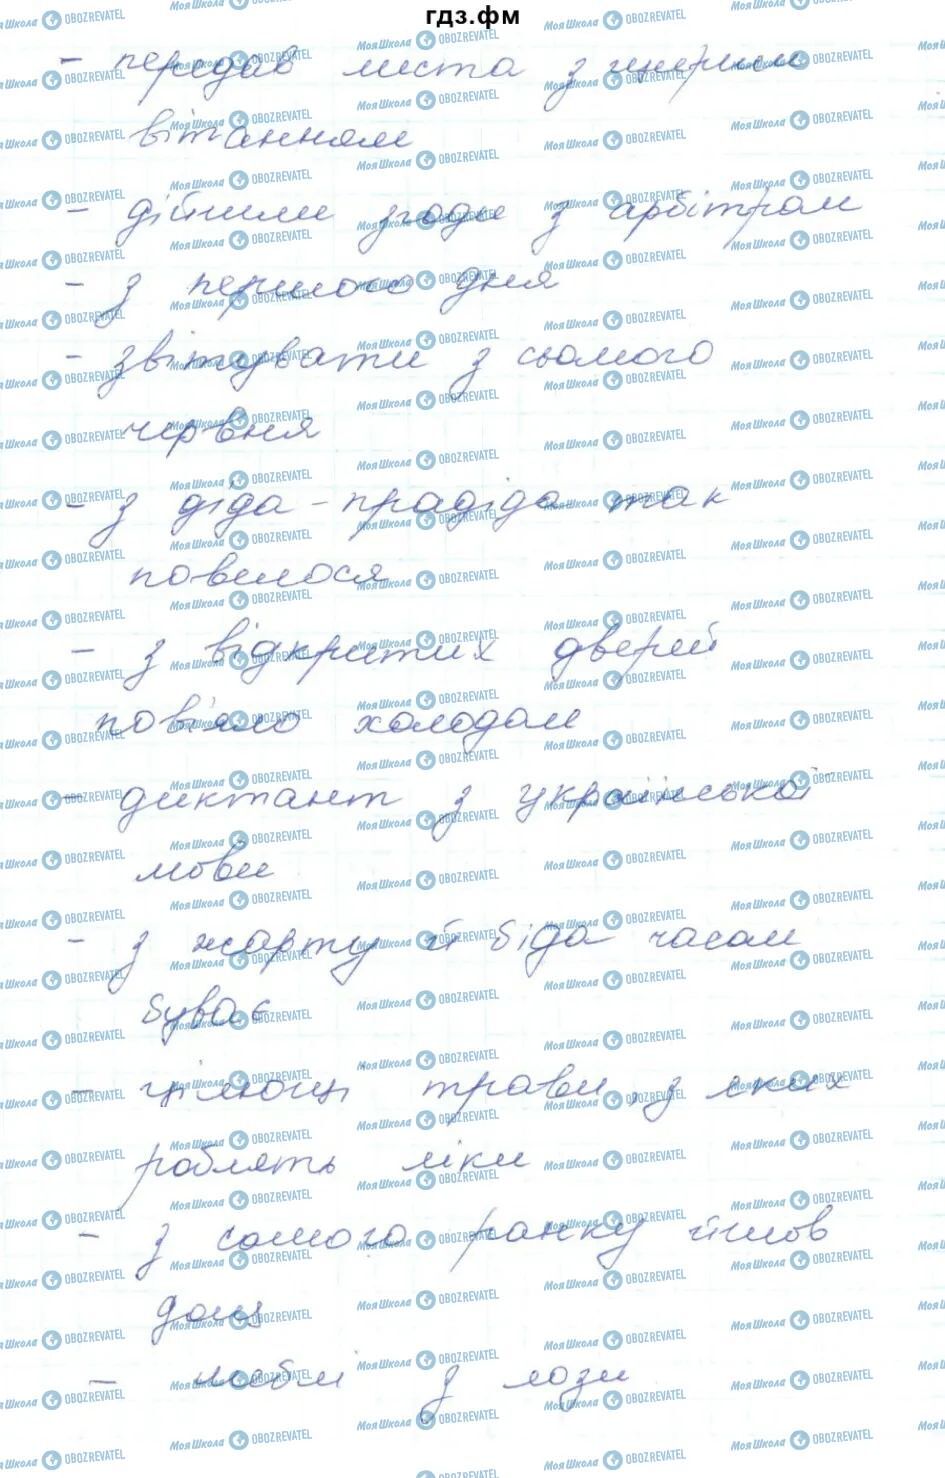 гдз.фм
- передав листа з щирим
вітанням
- дійшли згоди з арбітром
- з першого дня
- звітувати з сьомого
червня
- з діда-прадіда так
повелося
- з відкритих дверей
повіяло холодом
- диктант з української
мови
- з жарту й біда часом
буває
- цілющі трави, з яких
роблять ліки
- з самого ранку йшов
дощ
- меблі з лози
МояШкола OBOZREVATEL